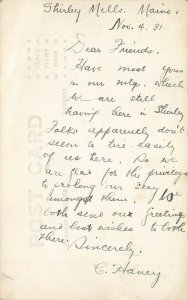 Shirley Mills. Maine.
Nov. 4. 31.
Dear Friends.
Have mist you
in our mtg. which
we are still
having here in Shirley
Folks apparently don't
seem to tire easily
of us here. So we
are glad for the privilege
to prolong our stay
amongst them. We
both send our Greeting
and best wishes to both
there. Sincerely.
C. Haney
POST CARD